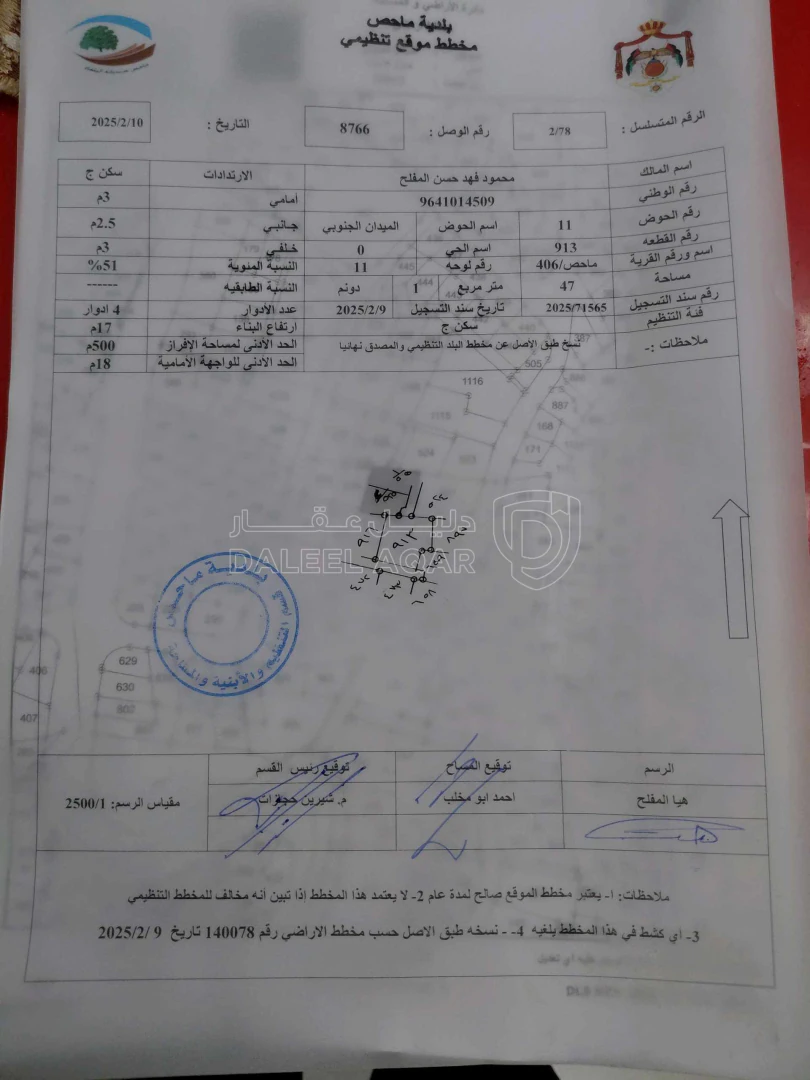 بلدية ماحص
مخطط موقع تنظيمي
الرقم المتسلسل : 2/78 رقم الوصل : 8766 التاريخ : 2025/2/10
اسم المالك محمود فهد حسن المفلح الارتدادات سكن ج
رقم الوطني 9641014509 أمامي 3م
رقم الحوض 11 اسم الحوض الميدان الجنوبي جانبي 2.5م
رقم القطعه 913 اسم الحي 0 خلفي 3م
اسم ورقم القرية ماحص/406 رقم لوحه 11 النسبة المئوية 51%
مساحة 47 متر مربع 1 دونم النسبة الطابقيه ------
رقم سند التسجيل 2025/71565 تاريخ سند التسجيل 2025/2/9 عدد الأدوار 4 ادوار
فئة التنظيم سكن ج ارتفاع البناء 17م
ملاحظات :- نسخ طبق الاصل عن مخطط البلد التنظيمي والمصدق نهائيا الحد الأدنى لمساحة الإفراز 500م
الحد الأدنى للواجهة الأمامية 18م
505
1116
887
168
171
٩١٦
٩١٣
دليل عقار
DALEEL AQAR
629
630
406
407
الرسم توقيع المساح توقيع رئيس القسم مقياس الرسم: 2500/1
هيا المفلح احمد ابو مخلب م. شيرين حجازات
ملاحظات: ا- يعتبر مخطط الموقع صالح لمدة عام 2- لا يعتمد هذا المخطط إذا تبين أنه مخالف للمخطط التنظيمي
3- أي كشط في هذا المخطط يلغيه 4- - نسخه طبق الاصل حسب مخطط الاراضي رقم 140078 تاريخ 9 /2025/2